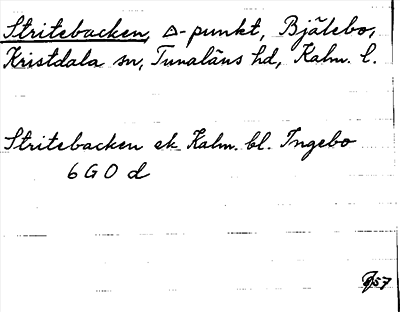 Stritebacken, △-punkt, Bjälebo,
Kristdala sn, Tunaläns hd, Kalm. l.
Stritebacken ek. Kalm. bl. Ingebo
6 G O d
57